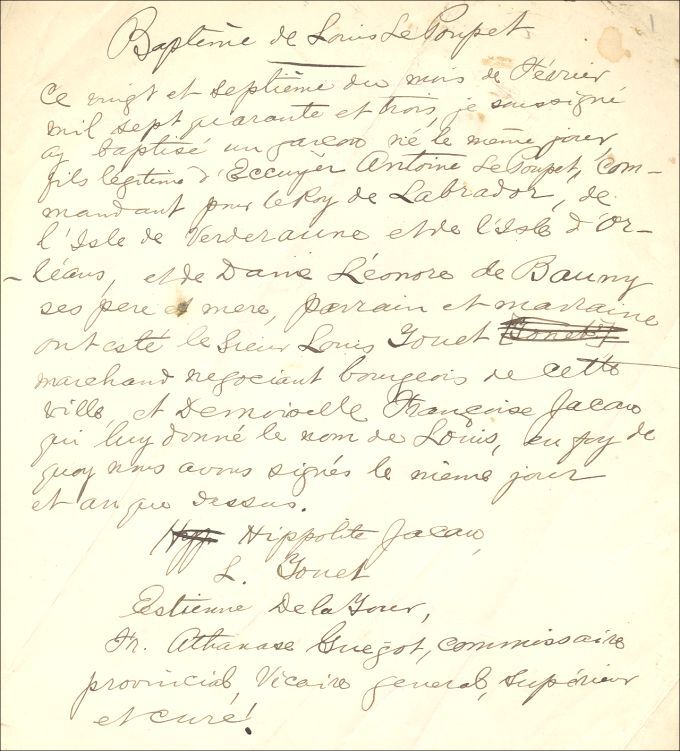 Baptème de Louis Le Poupet
Ce vingt et septième du mois de Février
mil sept quarante et trois, je soussigné
ay baptisé un garcon né le même jour,
fils légitime d'Eccuyèr Antoine Le Poupet, com-
mandant pour le Roy de Labrador, de
l'Isle de Verderaune et de l'Isle d'Or-
-léans, et de Dame Léonore de Bauny
ses pere et mere, parrain et marraine
ont esté le Sieur Louis Jouet [Jouet]
marchand negociant bourgeois de cette
ville, et Demoiselle Françoise Jacau
qui luy donné le nom de Louis, en foy de
quoy nous avons signés le même jour
et an que dessus.
Hipp. Hippolite Jacau,
L. Jouet
Estienne De la Jour,
Fr. Athanase Guégot, commissaire
provincial, Vicaire general, Supérieur
et curé.